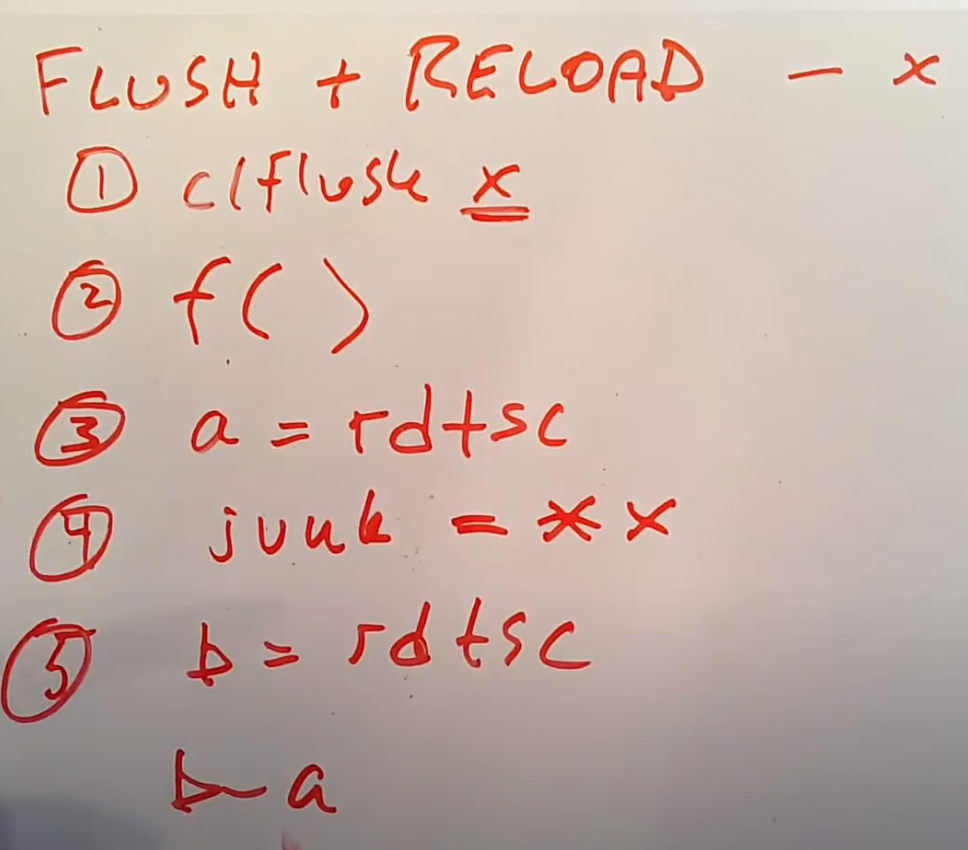 FLUSH + RELOAD - x
① clflush x
② f( )
③ a = rdtsc
④ junk = *x
⑤ b = rdtsc
b-a